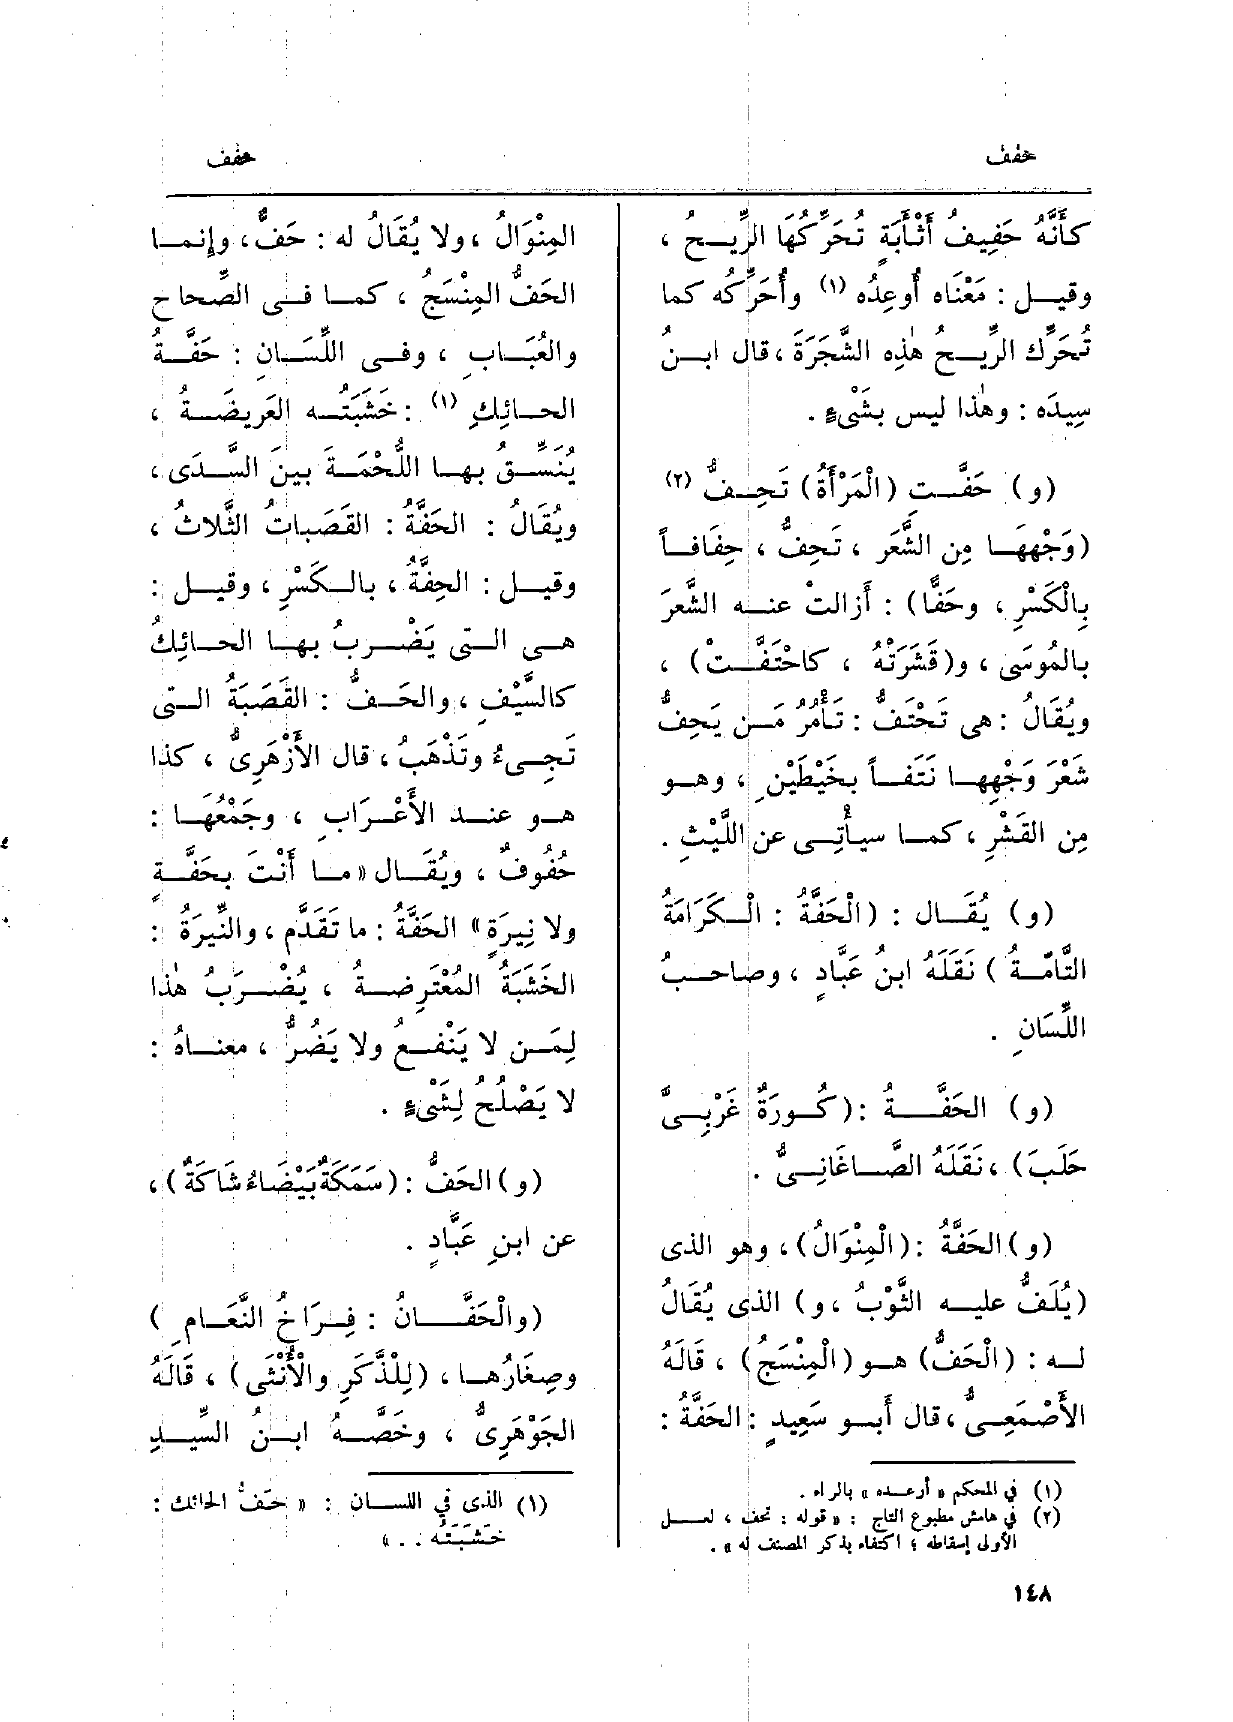 حفف
حفف
كأَنَّهُ حَفِيفُ أَثْأَبَةٍ تُحَرِّكُهَا الرِّيــح ،
وقيــل : مَعْنَاه أُوعِدُه (١) وأُحَرِّكه كما
تُحَرِّك الرِّيــح هٰذِه الشَّجَرَة ، قال ابــنُ
سِيدَه : وهٰذا ليس بشَىْءٍ .
(و) حَفَّــتِ (الْمَرْأَةُ) تَحِــفُّ (٢)
(وَجْهِهَــا مِن الشَّعَرِ ، تَحِفُّ ، حِفَافــاً
بِالْكَسْرِ ، وحَفًّا) : أَزالتْ عنــه الشَّعَرَ
بالمُوسَى ، و(قَشَرَتْهُ ، كاحْتَفَّــتْ) ،
ويُقَالُ : هى تَحْتَفُّ : تَأْمُرُ مَــن يَحِفُّ
شَعْرَ وَجْهِهــا نَتَفــاً بخَيْطَيْنِ ، وهــو
مِن القَشْرِ ، كمــا سيأْتِــى عن اللَّيْثِ .
(و) يُقَــال : (الْحَفَّةُ : الــكَرَامَةُ
التَّامَّــةُ ) نَقَلَهُ ابنُ عَبَّادٍ ، وصاحــبُ
اللِّسَانِ .
(و) الحَفَّــــةُ : (كُــورَةٌ غَرْبِــىَّ
حَلَبَ) ، نَقَلَهُ الصَّــاغَانِــىُّ .
(و) الحَفَّةُ : (الْمِنْوَالُ) ، وهو الذى
(يُلَفُّ عليــه الثَّوْبُ ، و) الذى يُقَالُ
لــه : (الْحَفُّ) هــو (الْمِنْسَجُ) ، قَالَهُ
الأَصْمَعِــىُّ ، قال أَبــو سَعِيدٍ : الحَفَّةُ :
(١) في المحكم « أرعــده » بالراء .
(٢) في هامش مطبوع التاج : « قوله : تحف ، لعــل
الأولى إسقاطه ؛ اكتفاء بذكر المصنف له » .
المِنْوَالُ ، ولا يُقَالُ له : حَفٌّ ، وإِنمــا
الحَفُّ المِنْسَجُ ، كمــا فــى الصِّحاحِ
والعُبَــابِ ، وفــى اللِّسَــانِ : حَفَّــةُ
الحــائِكِ (١) : خَشَبَتُــه العَرِيضَــةُ ،
يُنَسِّــقُ بهــا اللُّحْمَــةَ بينَ السَّــدَى ،
ويُقَالُ : الحَفَّةُ : القَصَبات الثَّلاثُ ،
وقيــل : الحِفَّةُ ، بالــكَسْرِ ، وقيــل :
هــى الــتى يَضْــرِبُ بهــا الحــائِكُ
كالسَّيْفِ ، والحَــفُّ : القَصَبَةُ الــتى
تَجِــىءُ وتَذْهَبُ ، قال الأَزْهَرِىُّ ، كذا
هــو عنــد الأَعْــرَابِ ، وجَمْعُهَــا :
حُفُوفٌ ، ويُقَــال « مــا أَنْتَ بِحَفَّــةٍ
ولا نِيرَةٍ » الحَفَّةُ : ما تَقَدَّم ، والنِّيرَةُ :
الخَشَبَةُ المُعْتَرِضــةُ ، يُضْــرَبُ هٰذا
لِمَــن لا يَنْفــعُ ولا يَضُرُّ ، معنــاهُ :
لا يَصْلُحُ لِشَىْءٍ .
(و) الحَفُّ : (سَمَكَةٌ بَيْضَاءُ شَاكَةٌ) ،
عن ابنِ عَبَّادٍ .
(والْحَفَّــــانُ : فِــرَاخُ النَّعَــامِ )
وصِغَارُهــا ، (لِلْذَّكَرِ والْأُنْثَى) ، قَالَهُ
الجَوْهَرِىُّ ، وخَصَّــهُ ابــنُ السِّيــدِ
(١) الذى في اللســان : « حَفُّ الحائك :
خَشَبَتُه . . »
١٤٨